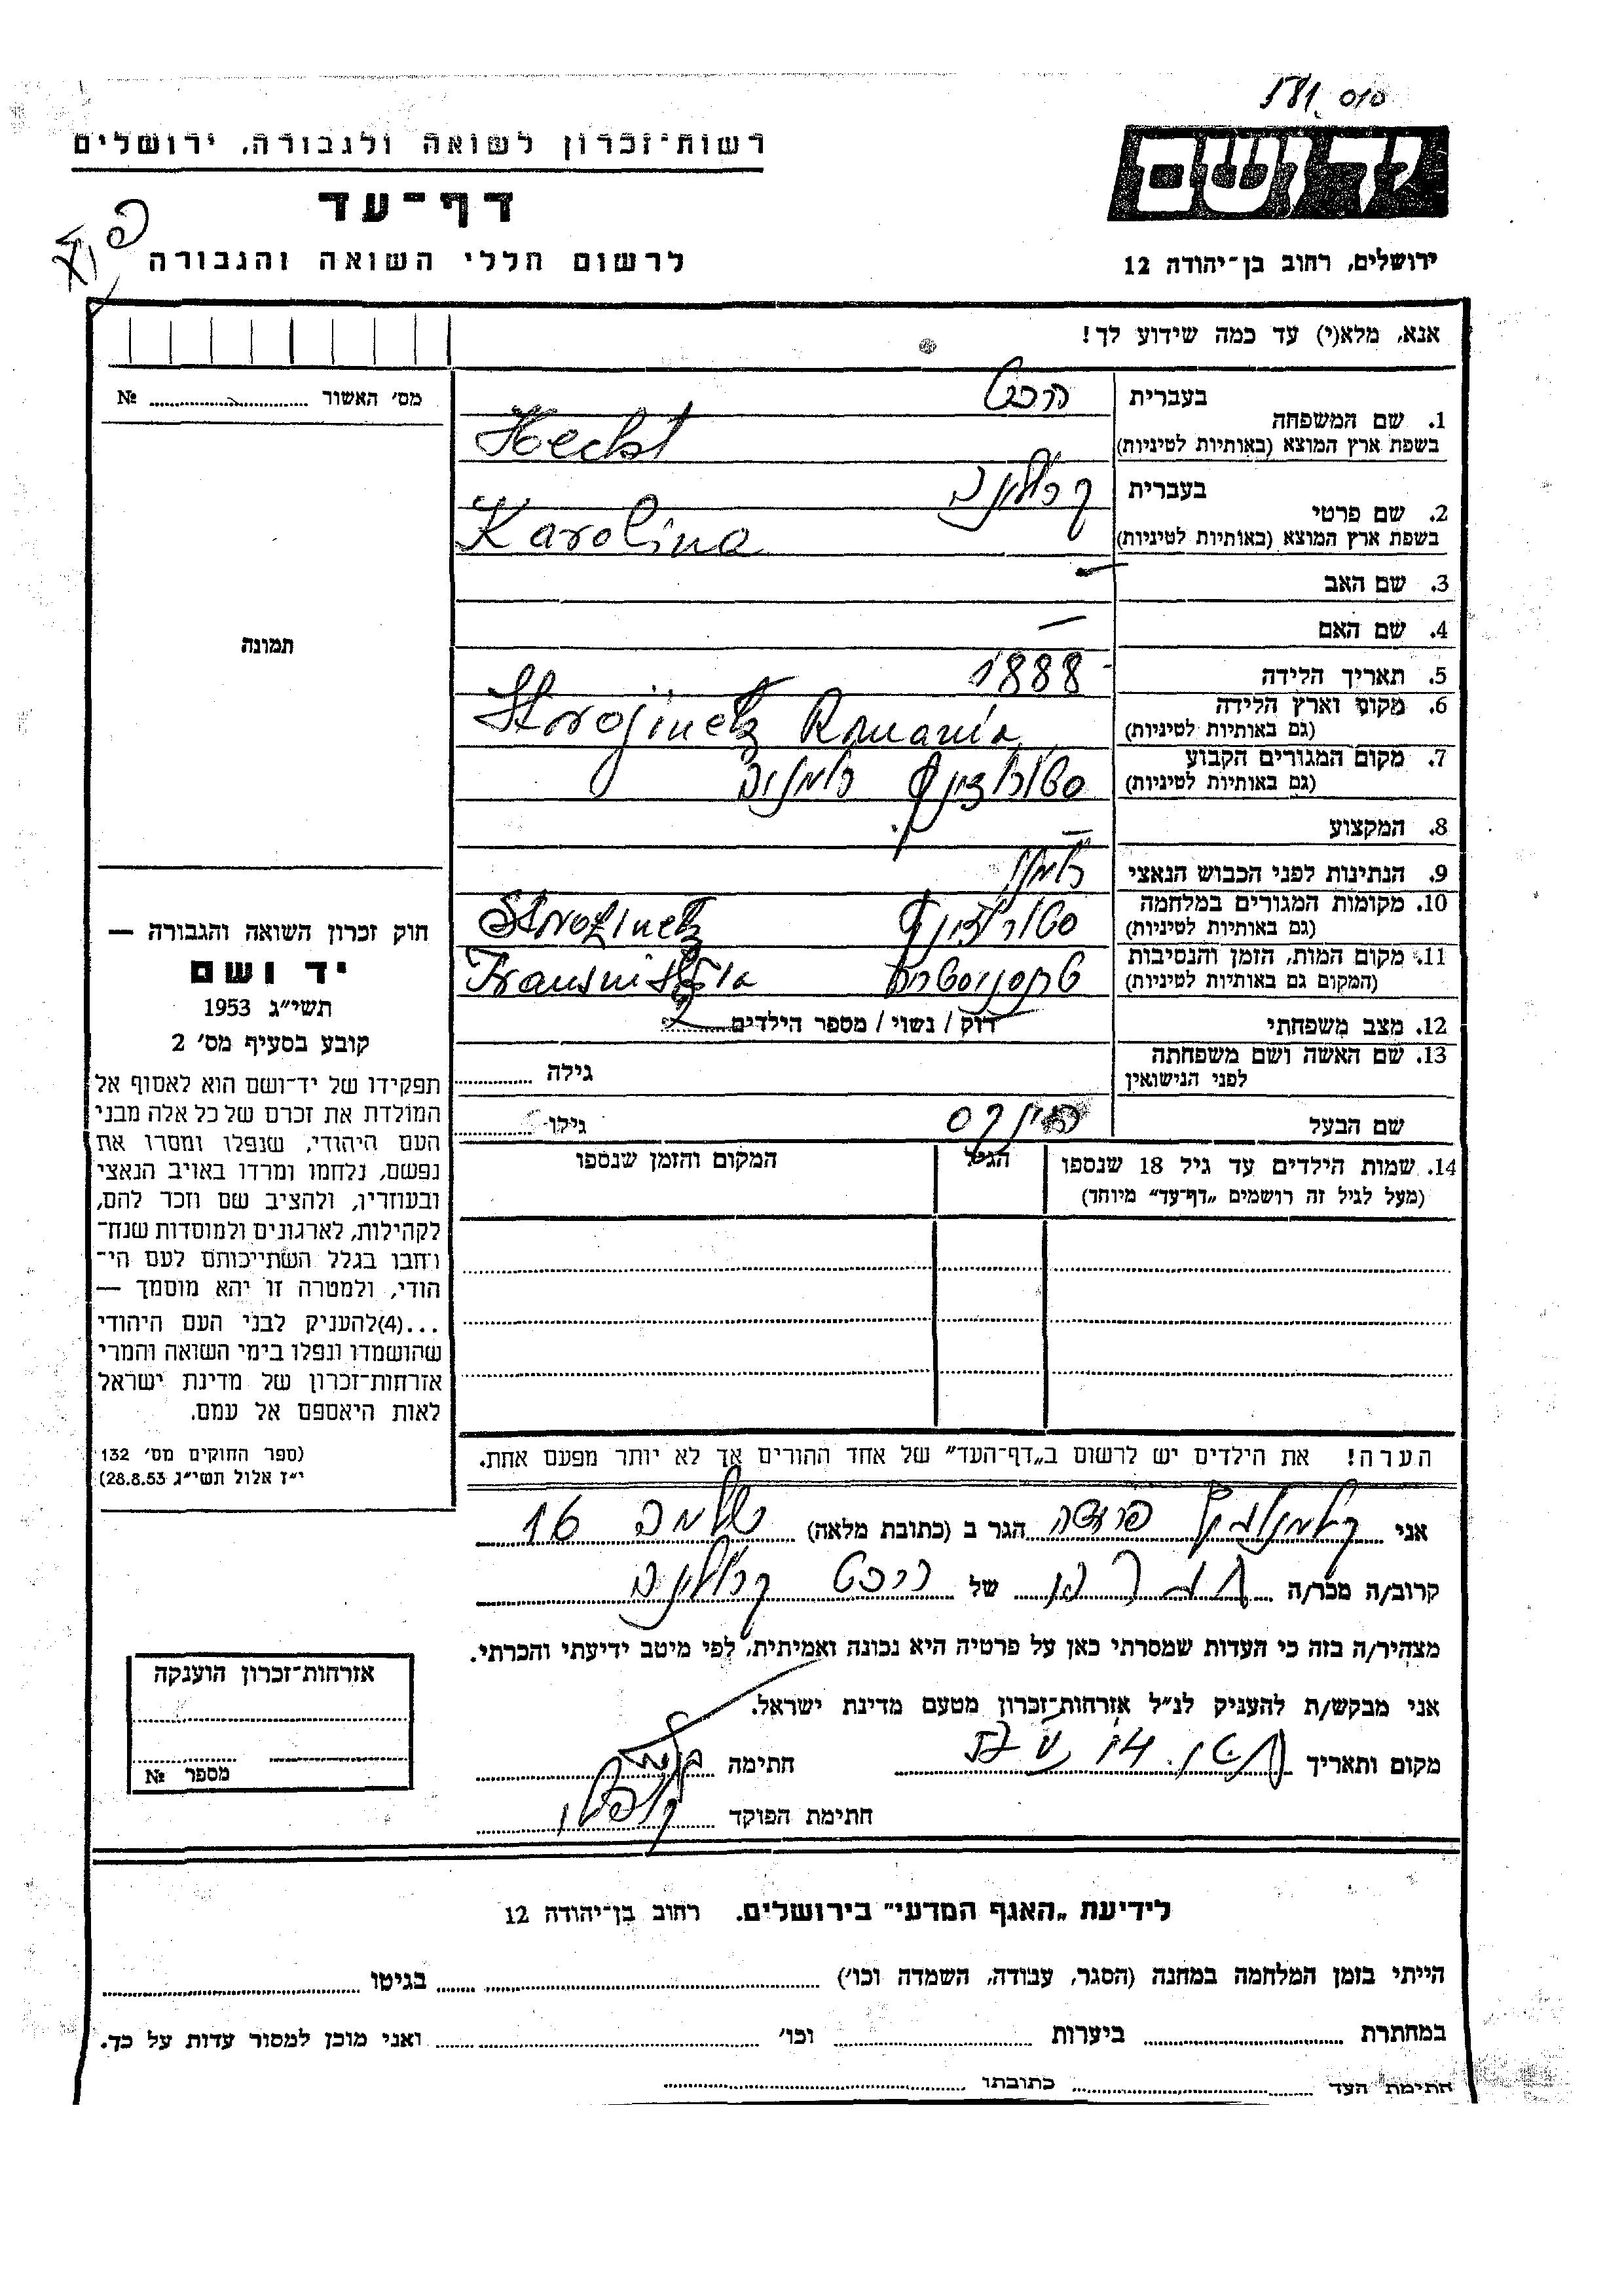 רשות־זכרון לשואה ולגבורה, ירושלים
יד ושם
דף־עד
לרשום חללי השואה והגבורה
ירושלים, רחוב בן־יהודה 12
אנא, מלא(י) עד כמה שידוע לך!
מס׳ האשור № 
1. שם המשפחה בעברית הכט
בשפת ארץ המוצא (באותיות לטיניות) Hecht
2. שם פרטי בעברית קרולינה
בשפת ארץ המוצא (באותיות לטיניות) Karolina
3. שם האב —
4. שם האם —
תמונה
5. תאריך הלידה 1888
6. מקום וארץ הלידה
(גם באותיות לטיניות) Strojinetz Romania
7. מקום המגורים הקבוע
(גם באותיות לטיניות) רומניה
8. המקצוע —
9. הנתינות לפני הכבוש הנאצי
10. מקומות המגורים במלחמה
(גם באותיות לטיניות) Strozinetz
11. מקום המות, הזמן והנסיבות
(המקום גם באותיות לטיניות) Transnistria
12. מצב משפחתי רווק / נשוי / מספר הילדים 2
13. שם האשה ושם משפחתה
לפני הנישואין גילה
שם הבעל פינקס גילו
14. שמות הילדים עד גיל 18 שנספו
(מעל לגיל זה רושמים „דף־עד” מיוחד)
הגיל
המקום והזמן שנספו
חוק זכרון השואה והגבורה —
יד ושם
תשי״ג 1953
קובע בסעיף מס׳ 2
תפקידו של יד־ושם הוא לאסוף אל
המולדת את זכרם של כל אלה מבני
העם היהודי, שנפלו ומסרו את
נפשם, נלחמו ומרדו באויב הנאצי
ובעוזריו, ולהציב שם וזכר להם,
לקהילות, לארגונים ולמוסדות שנח־
רחבו בגלל השתייכותם לעם הי־
הודי, ולמטרה זו יהא מוסמך —
...(4)להעניק לבני העם היהודי
שהושמדו ונפלו בימי השואה והמרי
אזרחות־זכרון של מדינת ישראל
לאות היאספם אל עמם.
(ספר החוקים מס׳ 132
י״ז אלול תשי״ג 28.8.53)
הערה! את הילדים יש לרשום ב„דף־העד” של אחד ההורים אך לא יותר מפעם אחת.
אני הגר ב (כתובת מלאה) 16
קרוב/ה מכר/ה של הכט קרולינה
מצהיר/ה בזה כי העדות שמסרתי כאן על פרטיה היא נכונה ואמיתית, לפי מיטב ידיעתי והכרתי.
אני מבקש/ת להעניק לנ״ל אזרחות־זכרון מטעם מדינת ישראל.
מקום ותאריך חתימה
חתימת הפוקד
אזרחות־זכרון הוענקה
מספר №
לידיעת „האגף המדעי” בירושלים. רחוב בן־יהודה 12
הייתי בזמן המלחמה במחנה (הסגר, עבודה, השמדה וכו׳) בגיטו
במחתרת ביערות וכו׳ ואני מוכן למסור עדות על כך.
חתימת העד כתובתו